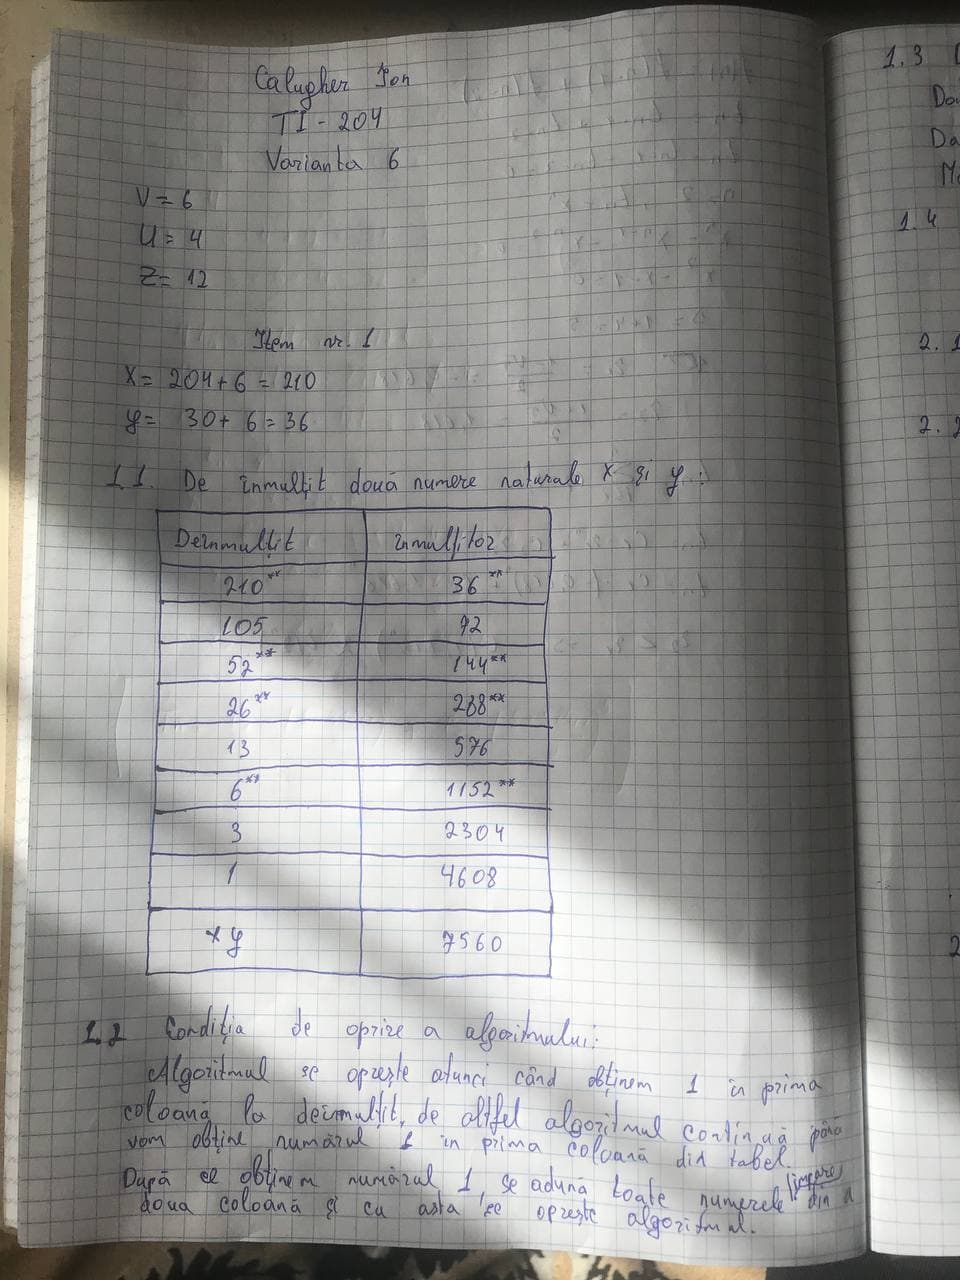 Calugher Ion
TI - 204
Varianta 6
V = 6
U = 4
Z = 12
Item nr. 1
X = 204 + 6 = 210
y = 30 + 6 = 36
1.1. De înmulțit două numere naturale x și y :
Deînmulțit înmulțitor
210** 36**
105 72
52** 144**
26** 288**
13 576
6** 1152**
3 2304
1 4608
xy 7560
1.2 Condiția de oprire a algoritmului:
Algoritmul se oprește atunci când obținem 1 în prima
coloană la deînmulțit, de altfel algoritmul continuă până
vom obține numărul 1 în prima coloană din tabel.
După ce obținem numărul 1, se adună toate numerele (impare) din a
doua coloană și cu asta se oprește algoritmul.
1.3
Da
1.4
2.1
2.2
2